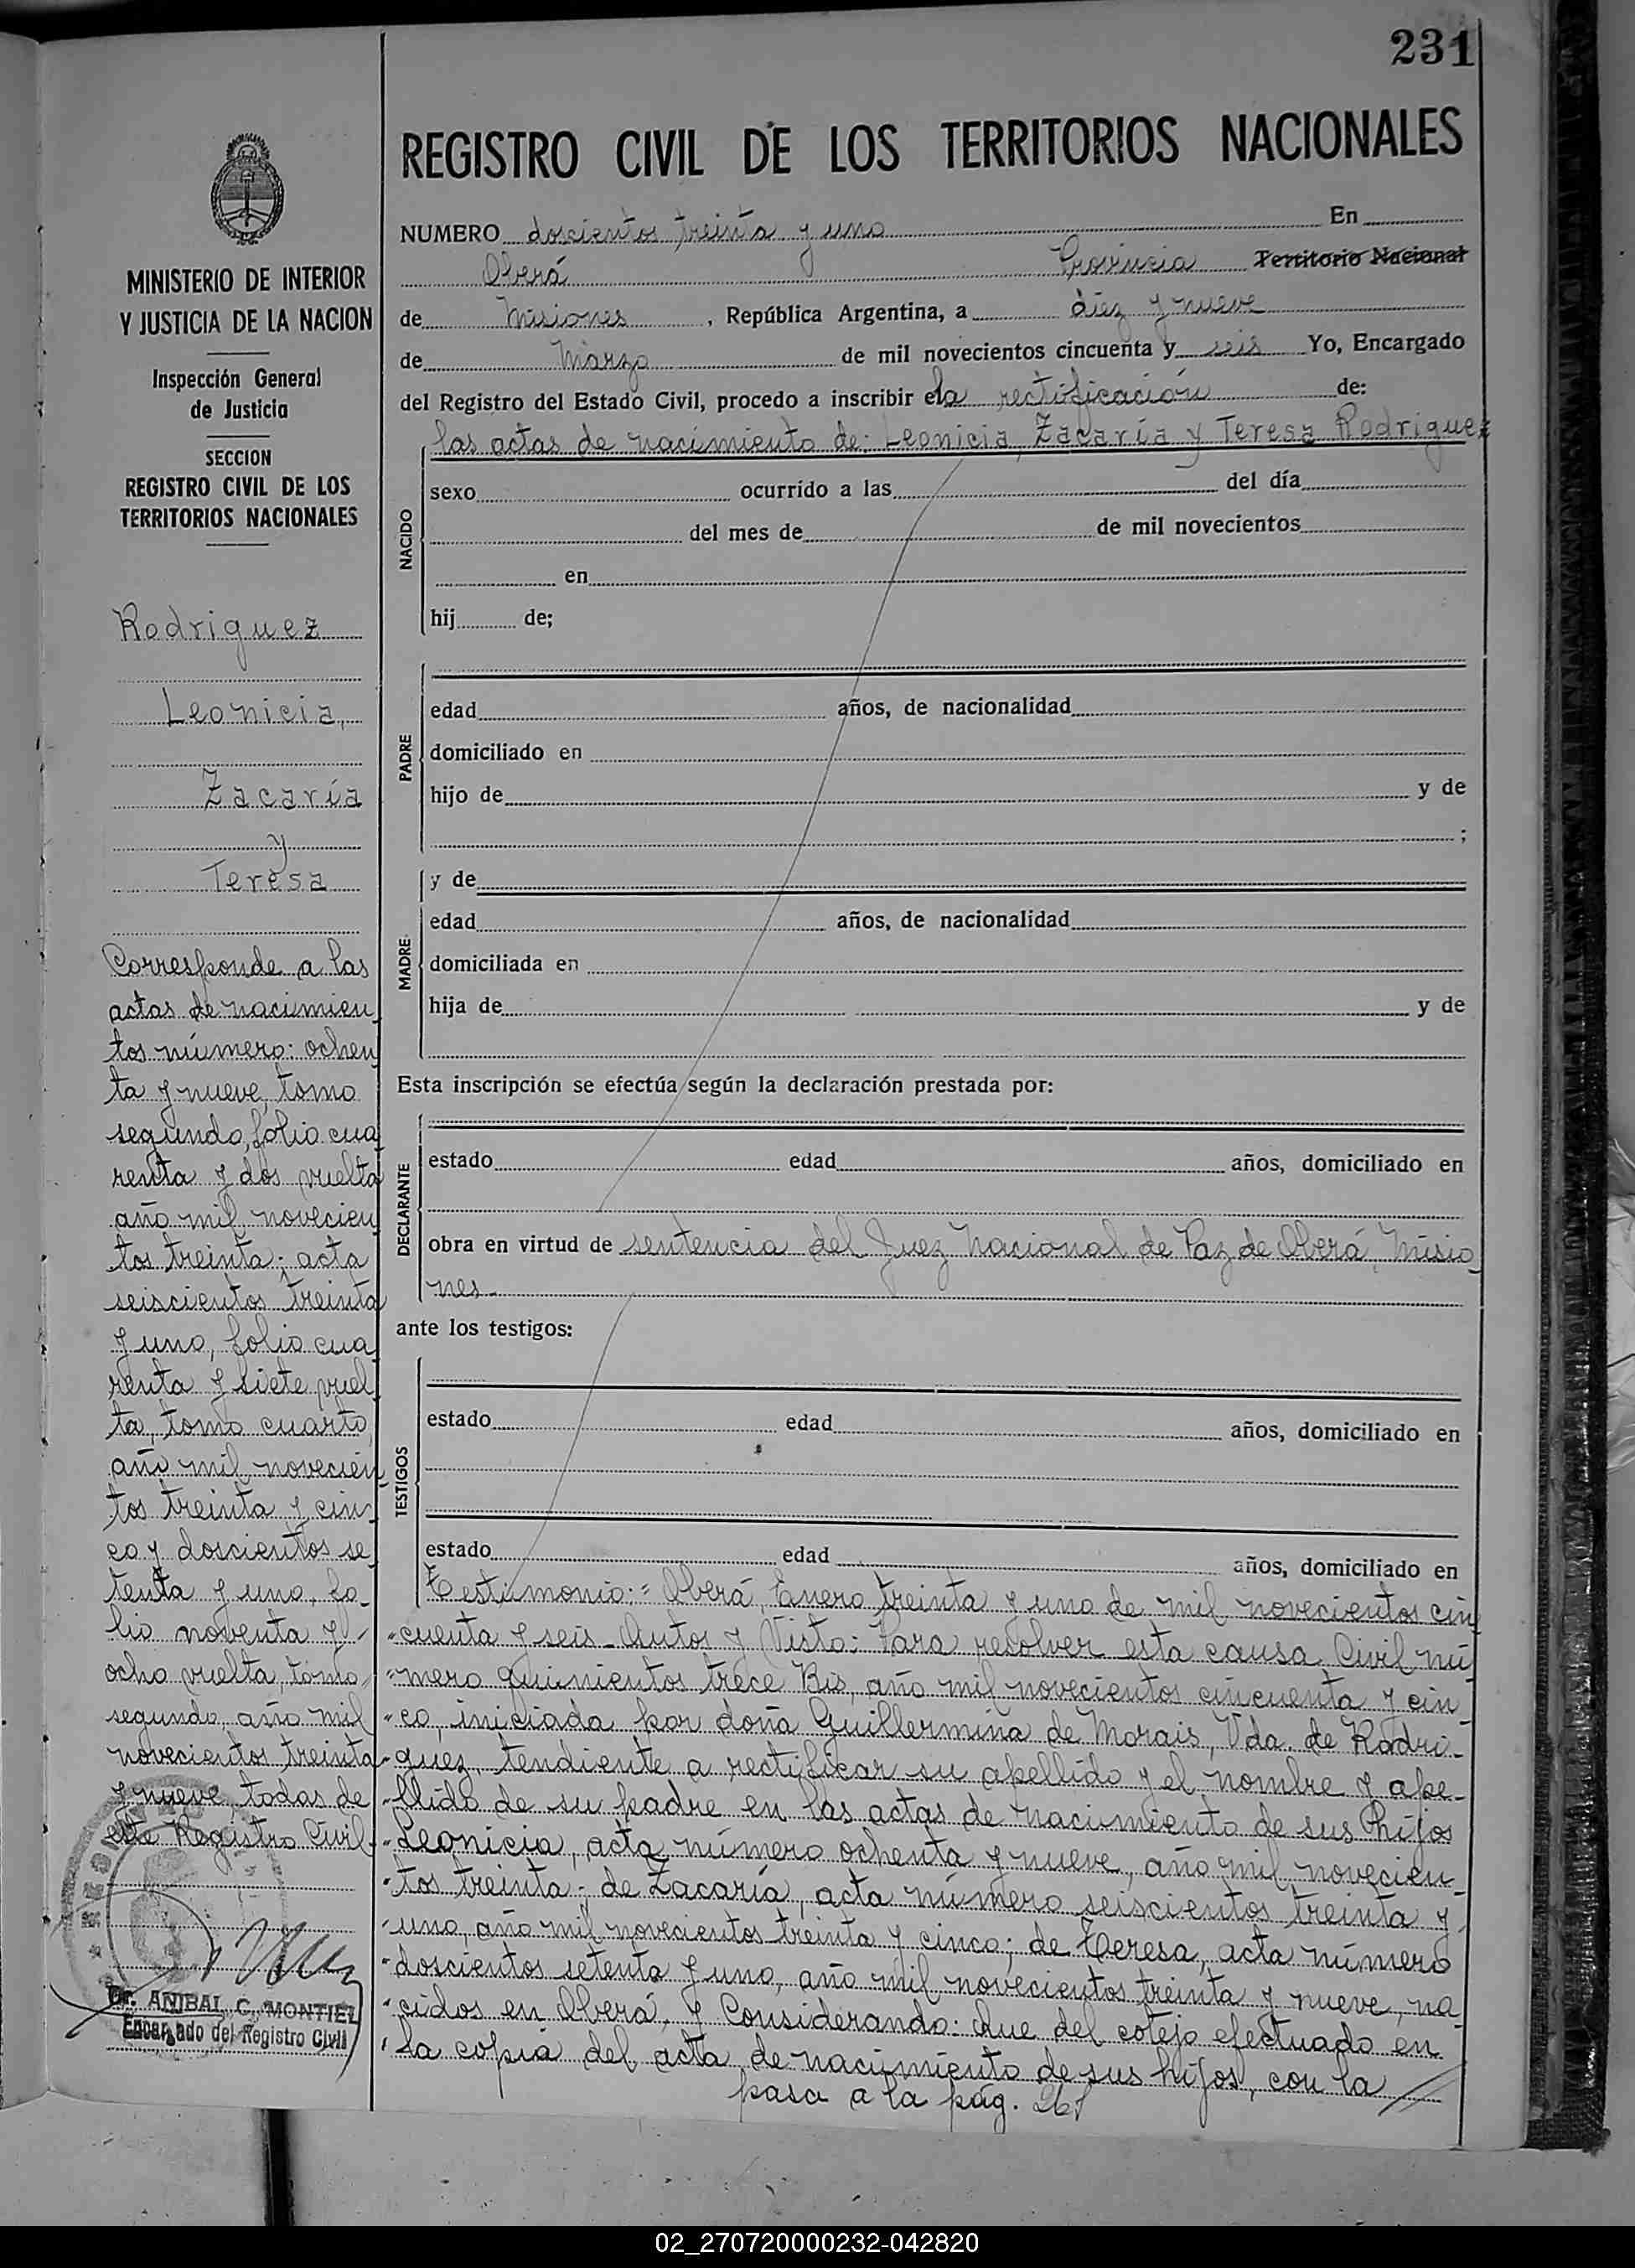 231
REGISTRO CIVIL DE LOS TERRITORIOS NACIONALES
MINISTERIO DE INTERIOR
Y JUSTICIA DE LA NACION
Inspección General
de Justicia
SECCION
REGISTRO CIVIL DE LOS
TERRITORIOS NACIONALES
Rodriguez
Leonicia,
Zacaría
y
Teresa
Corresponde a las
actas de nacimien
tos número: ochen
ta y nueve, tomo
segundo, folio cua
renta y dos vuelta
año mil novecien
tos treinta; acta
seiscientos treinta
y uno, folio cua
renta y siete vuel
ta, tomo cuarto,
año mil novecien
tos treinta y cin
co y doscientos se
tenta y uno, fo-
lio noventa y
ocho vuelta, tomo
segundo, año mil
novecientos treinta
y nueve, todas de
este Registro Civil.
Dr. ANIBAL C. MONTIEL
Encargado del Registro Civil
NUMERO doscientos treinta y uno En
Oberá Provincia Territorio Nacional
de Misiones, República Argentina, a diez y nueve
de Marzo de mil novecientos cincuenta y seis Yo, Encargado
del Registro del Estado Civil, procedo a inscribir ela rectificación de:
las actas de nacimiento de: Leonicia, Zacaría y Teresa Rodriguez
NACIDO
sexo ocurrido a las del día
del mes de de mil novecientos
en
hij de;
PADRE
edad años, de nacionalidad
domiciliado en
hijo de y de
;
MADRE
y de
edad años, de nacionalidad
domiciliada en
hija de y de
Esta inscripción se efectúa según la declaración prestada por:
DECLARANTE
estado edad años, domiciliado en
obra en virtud de sentencia del Juez Nacional de Paz de Oberá, Misio
nes.
ante los testigos:
TESTIGOS
estado edad años, domiciliado en
estado edad años, domiciliado en
Testimonio:= Oberá, Enero treinta y uno de mil novecientos cin
"cuenta y seis - Autos y Visto: Para resolver esta causa Civil nú
"mero quinientos trece Bis, año mil novecientos cincuenta y cin
"co, iniciada por doña Guillermina de Morais, Vda. de Rodri-
"guez, tendiente a rectificar su apellido y el nombre y ape-
"llido de su padre en las actas de nacimiento de sus hijos
"Leonicia, acta número ochenta y nueve, año mil novecien-
"tos treinta; de Zacaría, acta número seiscientos treinta y
"uno, año mil novecientos treinta y cinco; de Teresa, acta número
"doscientos setenta y uno, año mil novecientos treinta y nueve, na
"cidos en Oberá, y Considerando: Que del cotejo efectuado en
"la copia del acta de nacimiento de sus hijos, con la
pasa a la pág. 261
02_270720000232-042820